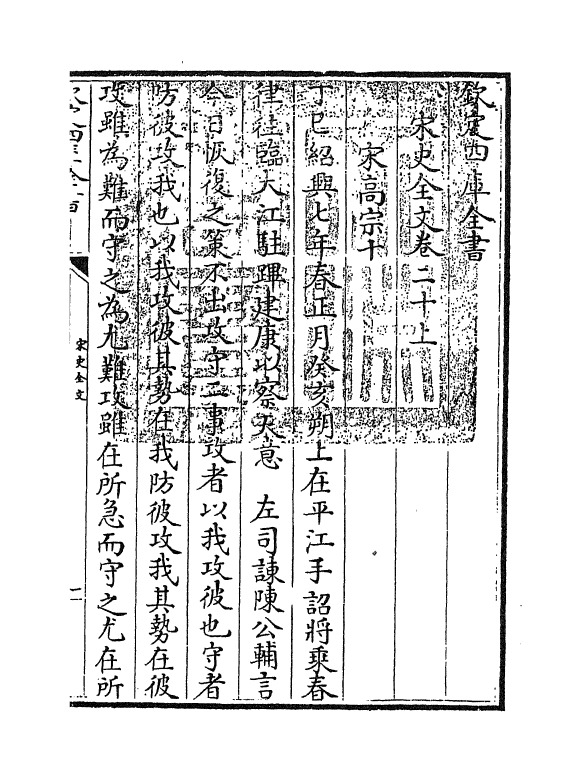 欽定四庫全書
宋史全文卷二十上
宋高宗十
丁巳紹興七年春正月癸亥朔上在平江手詔將乗春
律往臨大江駐蹕建康以察天意　左司諫陳公輔言
今日恢復之策不出攻守二事攻者以我攻彼也守者
防彼攻我也以我攻彼其勢在我防彼攻我其勢在彼
攻雖為難而守之為尤難攻雖在所急而守之尤在所
宋史全文